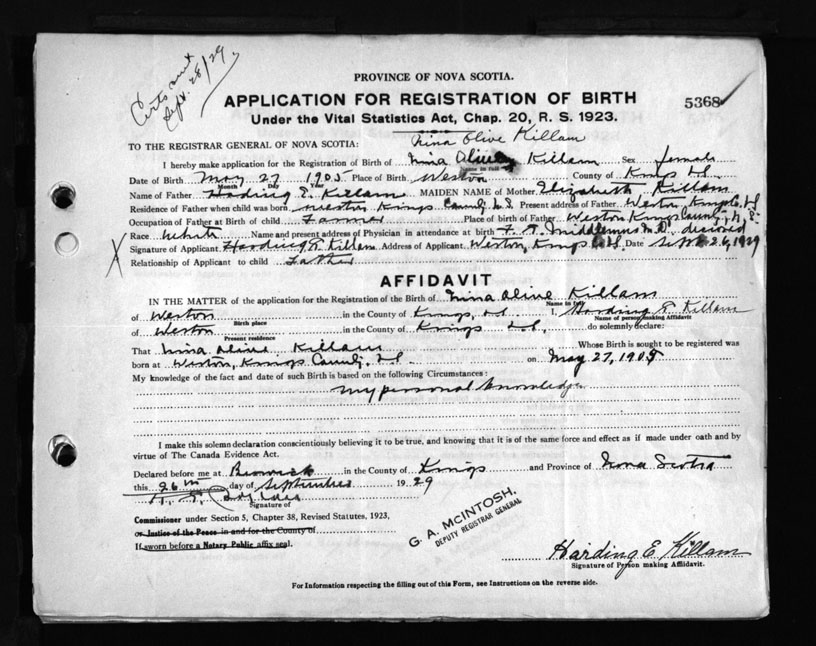 Certs sent
Sept. 28/29
PROVINCE OF NOVA SCOTIA.
APPLICATION FOR REGISTRATION OF BIRTH 5368
Under the Vital Statistics Act, Chap. 20, R. S. 1923.
Nina Olive Killam
TO THE REGISTRAR GENERAL OF NOVA SCOTIA:
I hereby make application for the Registration of Birth of Nina Olive Killam Sex female
Name in full
Date of Birth May 27 1905 Place of Birth Weston County of Kings N.S.
Month Day Year
Name of Father Harding E. Killam MAIDEN NAME of Mother Elizabeth Killam
Residence of Father when child was born Weston Kings County N.S. Present address of Father Weston, Kings Co. N.S.
Occupation of Father at Birth of child Farmer Place of birth of Father Weston Kings County, N.S.
Race white Name and present address of Physician in attendance at birth F. Middlemas M.D. deceased
X Signature of Applicant Harding E. Killam Address of Applicant Weston, Kings Co. N.S. Date Sept. 26, 1929
Relationship of Applicant to child Father
AFFIDAVIT
IN THE MATTER of the application for the Registration of the Birth of Nina Olive Killam
Name in full
of Weston in the County of Kings, N.S. I, Harding E. Killam
Birth place Name of person making Affidavit
of Weston in the County of Kings N.S., do solemnly declare:
Present residence
That Nina Olive Killam Whose Birth is sought to be registered was
born at Weston, Kings County, N.S. on May 27, 1905
My knowledge of the fact and date of such Birth is based on the following Circumstances:
My personal knowledge
I make this solemn declaration conscientiously believing it to be true, and knowing that it is of the same force and effect as if made under oath and by
virtue of The Canada Evidence Act.
Declared before me at Berwick in the County of Kings and Province of Nova Scotia
this 26th day of September 1929
Signature of
Commissioner under Section 5, Chapter 38, Revised Statutes, 1923,
or Justice of the Peace in and for the County of
If sworn before a Notary Public affix seal.
G. A. McINTOSH,
DEPUTY REGISTRAR GENERAL
Harding E. Killam
Signature of Person making Affidavit.
For Information respecting the filling out of this Form, see Instructions on the reverse side.